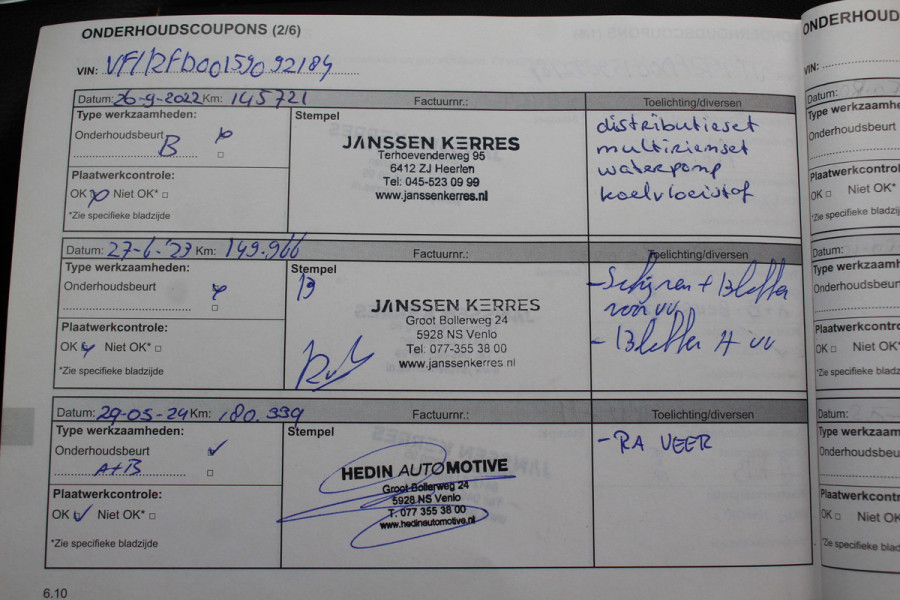 ONDERHOUDSCOUPONS (2/6)
VIN: VF1RFD00159092184
Datum: 26-9-2022 Km: 145721 Factuurnr.: Toelichting/diversen
Type werkzaamheden:
Onderhoudsbeurt
B
Plaatwerkcontrole:
OK Niet OK*
*Zie specifieke bladzijde
Stempel
JANSSEN KERRES
Terhoevenderweg 95
6412 ZJ Heerlen
Tel: 045-523 09 99
www.janssenkerres.nl
distributieset
multiriemset
waterpomp
koelvloeistof
Datum: 27-6-'23 Km: 149.966 Factuurnr.: Toelichting/diversen
Type werkzaamheden:
Onderhoudsbeurt
Plaatwerkcontrole:
OK Niet OK*
*Zie specifieke bladzijde
Stempel
B
JANSSEN KERRES
Groot Bollerweg 24
5928 NS Venlo
Tel: 077-355 38 00
www.janssenkerres.nl
- Schijven + Blokken
- Blokken A
Datum: 29-05-24 Km: 180.339 Factuurnr.: Toelichting/diversen
Type werkzaamheden:
Onderhoudsbeurt
A+B
Plaatwerkcontrole:
OK Niet OK*
*Zie specifieke bladzijde
Stempel
HEDIN AUTOMOTIVE
Groot Bollerweg 24
5928 NS Venlo
T. 077 355 38 00
www.hedinautomotive.nl
- RA VEER
6.10
ONDERHOUD
VIN:
Datum:
Type werkzaamh
Onderhoudsbeurt
Plaatwerkcontro
OK Niet OK*
*Zie specifieke bladzij
Datum:
Type werkzaamh
Onderhoudsbeur
Plaatwerkcontro
OK Niet OK*
*Zie specifieke bladzij
Datum:
Type werkzaam
Onderhoudsbeu
Plaatwerkcontr
OK Niet OK
*Zie specifieke blad